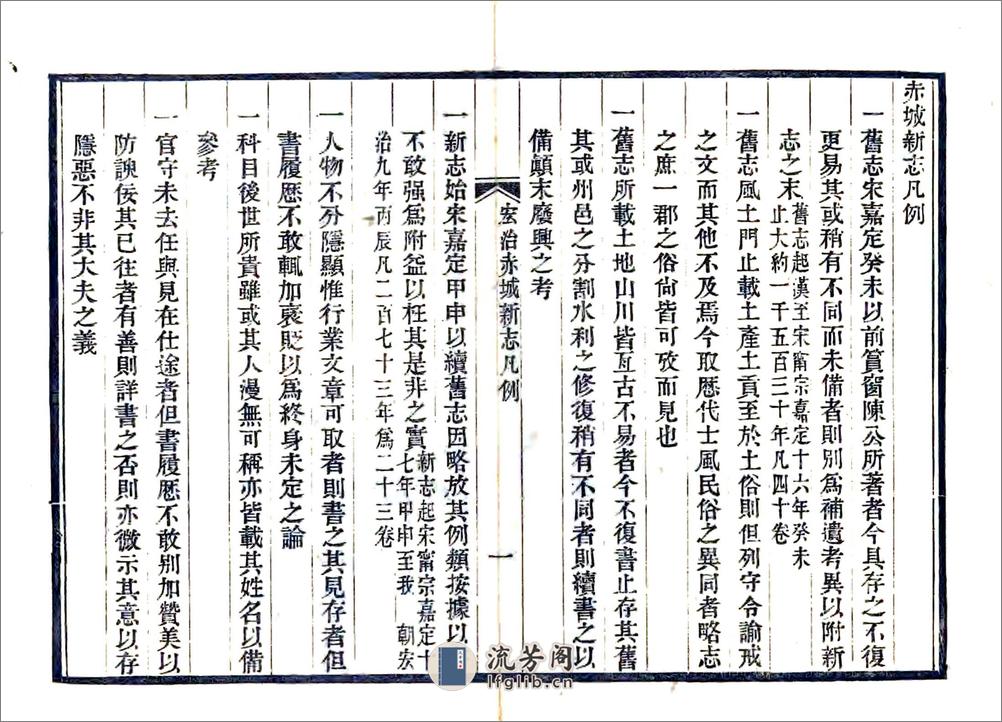 赤城新志凡例
一舊志宋嘉定癸未以前篔窗陳公所著者今具存之不復
更易其或稍有不同而未備者則別爲補遺考異以附新
志之末舊志起漢至宋甯宗嘉定十六年癸未
止大約一千五百三十年凡四十卷
一舊志風土門止載土產土貢至於土俗則但列守令諭戒
之文而其他不及焉今取歷代士風民俗之異同者略志
之庶一郡之俗尙皆可攷而見也
一舊志所載土地山川皆亙古不易者今不復書止存其舊
其或州邑之分割水利之修復稍有不同者則續書之以
備顛末廢興之考
宏治赤城新志凡例
一
一新志始宋嘉定甲申以續舊志因略放其例類按據以書
不敢强爲附益以枉其是非之實新志起宋甯宗嘉定十
七年甲申至我 朝宏
治九年丙辰凡二百七十三年爲二十三卷
一人物不分隱顯惟行業文章可取者則書之其見存者但
書履歷不敢輒加褒貶以爲終身未定之論
一科目後世所貴雖或其人漫無可稱亦皆載其姓名以備
參考
一官守未去任與見在仕途者但書履歷不敢別加贊美以
防諛佞其已往者有善則詳書之否則亦微示其意以存
隱惡不非其大夫之義
流芳阁
lfglib.com